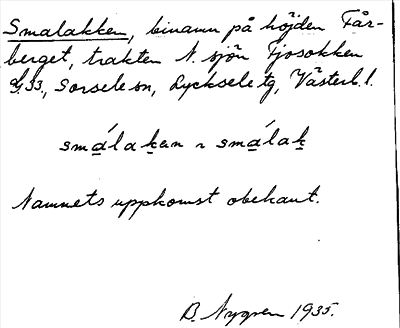 Smalakken, binamn på höjden Får-
berget, trakten N. sjön Fjosokken
g33, Sorsele sn, Lycksele tg, Västerb. l.
smálaken ~ smálak
Namnets uppkomst obekant.
B. Nygren 1935.